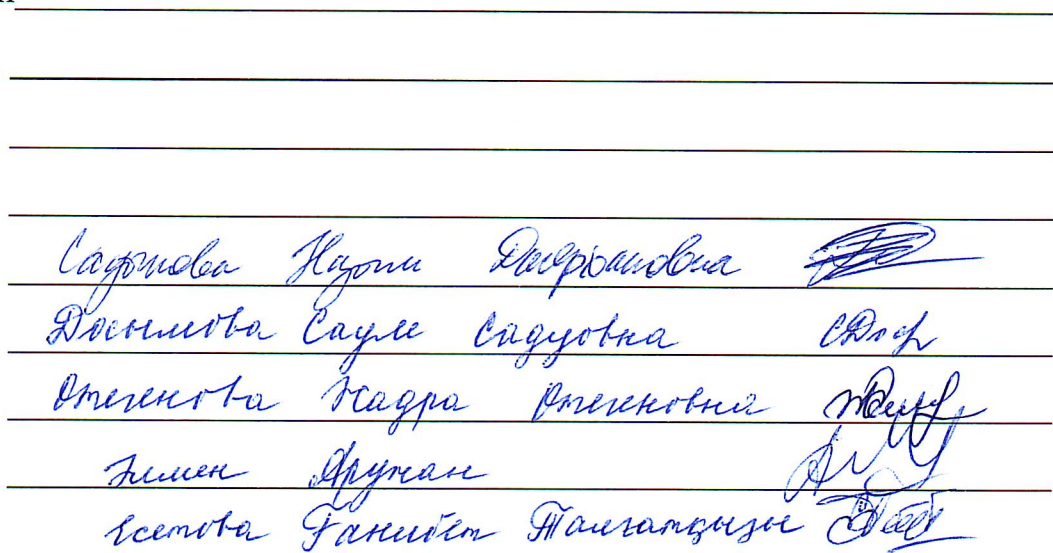 Садыкова Назым Даурбановна
Досымова Сауле Садуовна
Отегенова Жадра Отегеновна
Әлмен Аружан
Есетова Ғанибет Талғатқызы